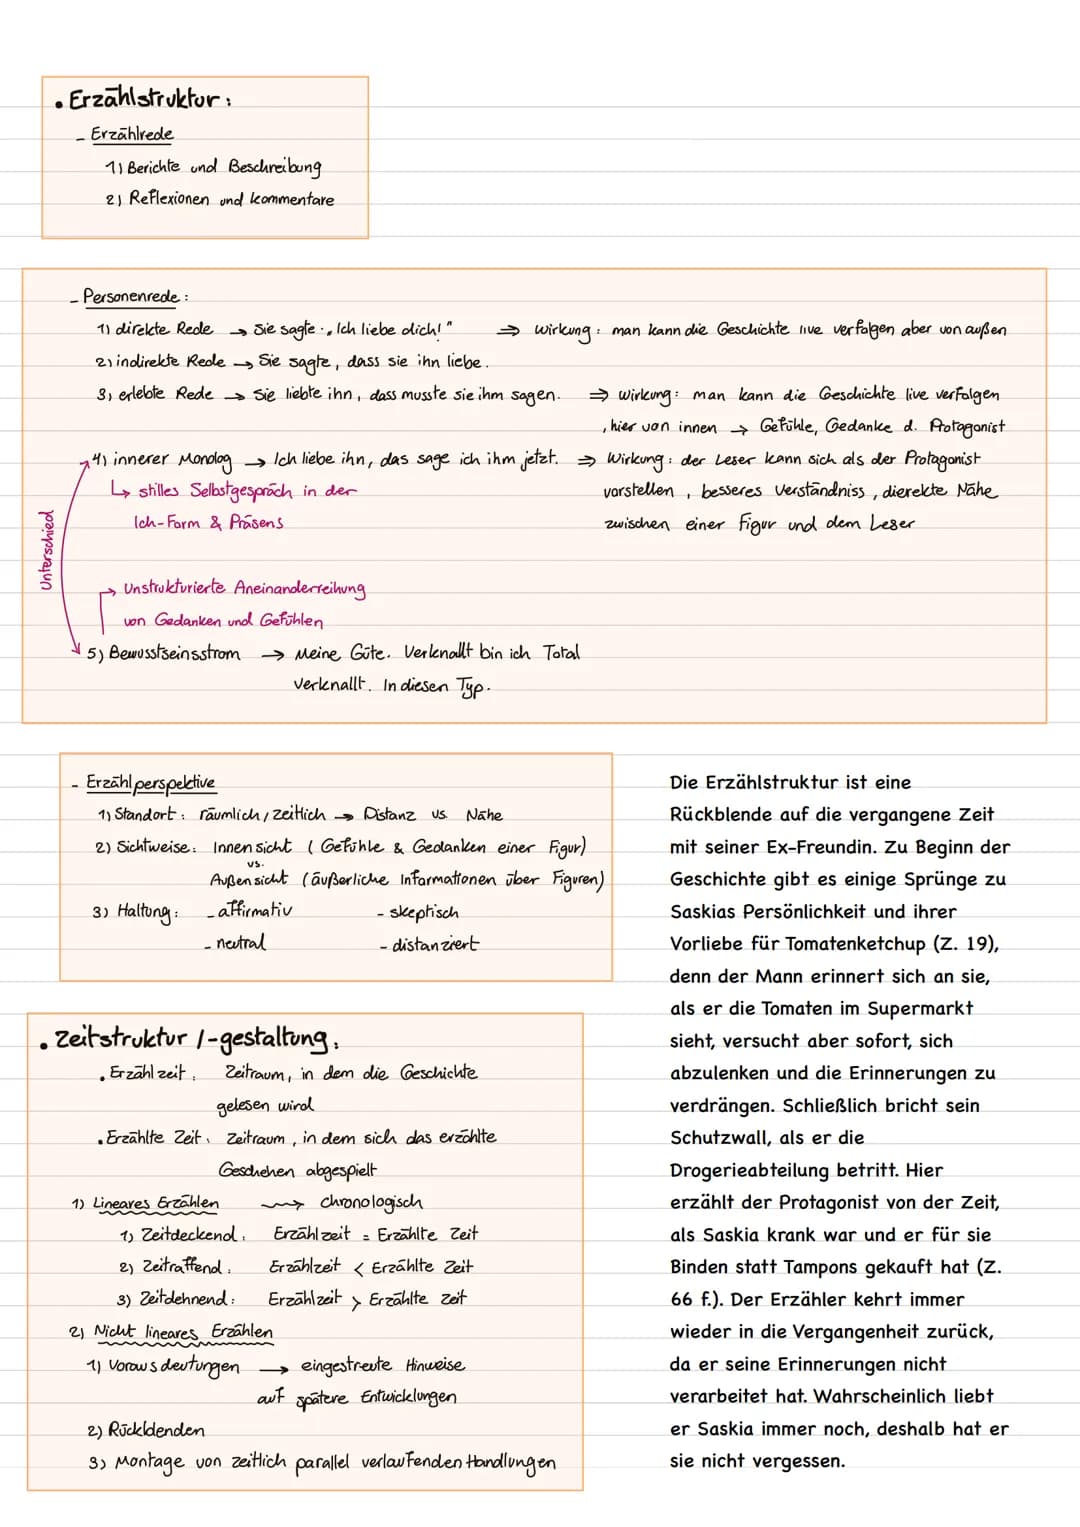 • Erzählstruktur:
- Erzählrede
1) Berichte und Beschreibung
2) Reflexionen und kommentare
- Personenrede:
1) direkte Rede → Sie sagte: „Ich liebe dich!" ⇒ wirkung: man kann die Geschichte live verfolgen aber von außen
2) indirekte Rede → Sie sagte, dass sie ihn liebe.
3) erlebte Rede → Sie liebte ihn, dass musste sie ihm sagen. ⇒ wirkung: man kann die Geschichte live verfolgen
, hier von innen → Gefühle, Gedanke d. Protagonist
4) innerer Monolog → Ich liebe ihn, das sage ich ihm jetzt. ⇒ Wirkung: der Leser kann sich als der Protagonist
↳ stilles Selbstgespräch in der vorstellen, besseres Verständniss, dierekte Nähe
Ich-Form & Präsens zwischen einer Figur und dem Leser
Unterschied
→ Unstrukturierte Aneinanderreihung
von Gedanken und Gefühlen
5) Bewusstseinsstrom → Meine Güte. Verknallt bin ich Total
verknallt. In diesen Typ.
- Erzählperspektive
1) Standort: räumlich, zeitlich → Distanz vs. Nähe
2) Sichtweise: Innensicht (Gefühle & Gedanken einer Figur)
vs.
Außensicht (äußerliche Informationen über Figuren)
3) Haltung: - affirmativ - skeptisch
- neutral - distanziert
• Zeitstruktur /-gestaltung:
• Erzählzeit: Zeitraum, in dem die Geschichte
gelesen wird
• Erzählte Zeit: Zeitraum, in dem sich das erzählte
Geschehen abgespielt
1) Lineares Erzählen → chronologisch
1) Zeitdeckend: Erzählzeit = Erzählte Zeit
2) Zeitraffend: Erzählzeit < Erzählte Zeit
3) Zeitdehnend: Erzählzeit > Erzählte Zeit
2) Nicht lineares Erzählen
1) Vorausdeutungen → eingestreute Hinweise
auf spätere Entwicklungen
2) Rückbldenden
3) Montage von zeitlich parallel verlaufenden Handlungen
Die Erzählstruktur ist eine
Rückblende auf die vergangene Zeit
mit seiner Ex-Freundin. Zu Beginn der
Geschichte gibt es einige Sprünge zu
Saskias Persönlichkeit und ihrer
Vorliebe für Tomatenketchup (Z. 19),
denn der Mann erinnert sich an sie,
als er die Tomaten im Supermarkt
sieht, versucht aber sofort, sich
abzulenken und die Erinnerungen zu
verdrängen. Schließlich bricht sein
Schutzwall, als er die
Drogerieabteilung betritt. Hier
erzählt der Protagonist von der Zeit,
als Saskia krank war und er für sie
Binden statt Tampons gekauft hat (Z.
66 f.). Der Erzähler kehrt immer
wieder in die Vergangenheit zurück,
da er seine Erinnerungen nicht
verarbeitet hat. Wahrscheinlich liebt
er Saskia immer noch, deshalb hat er
sie nicht vergessen.